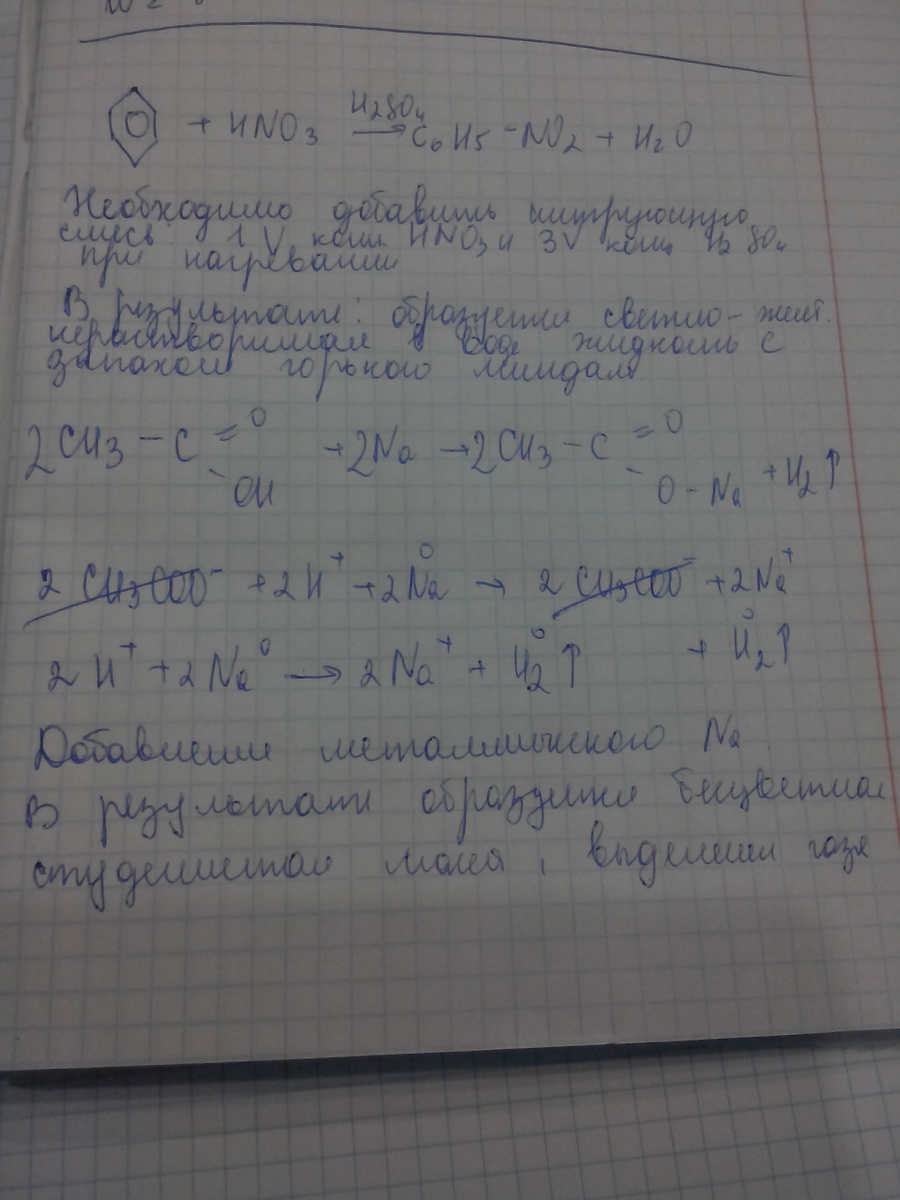 + HNO3 H2SO4 → C6H5 - NO2 + H2O
Необходимо добавить нитрующую
смесь 1 V конц. HNO3 и 3V конц H2SO4
при нагревании
В результате: образуется светло-желт.
нерастворимая в воде жидкость с
запахом горького миндаля
2CH3 - C =O -OH + 2Na → 2CH3 - C =O -O - Na + H2↑
2 CH3COO⁻ + 2H⁺ + 2Na⁰ → 2 CH3COO⁻ + 2Na⁺
+ H2⁰↑
2H⁺ + 2Na⁰ → 2Na⁺ + H2⁰↑
Добавление металлического Na
В результате образуется бесцветная
студенистая масса, выделении газа